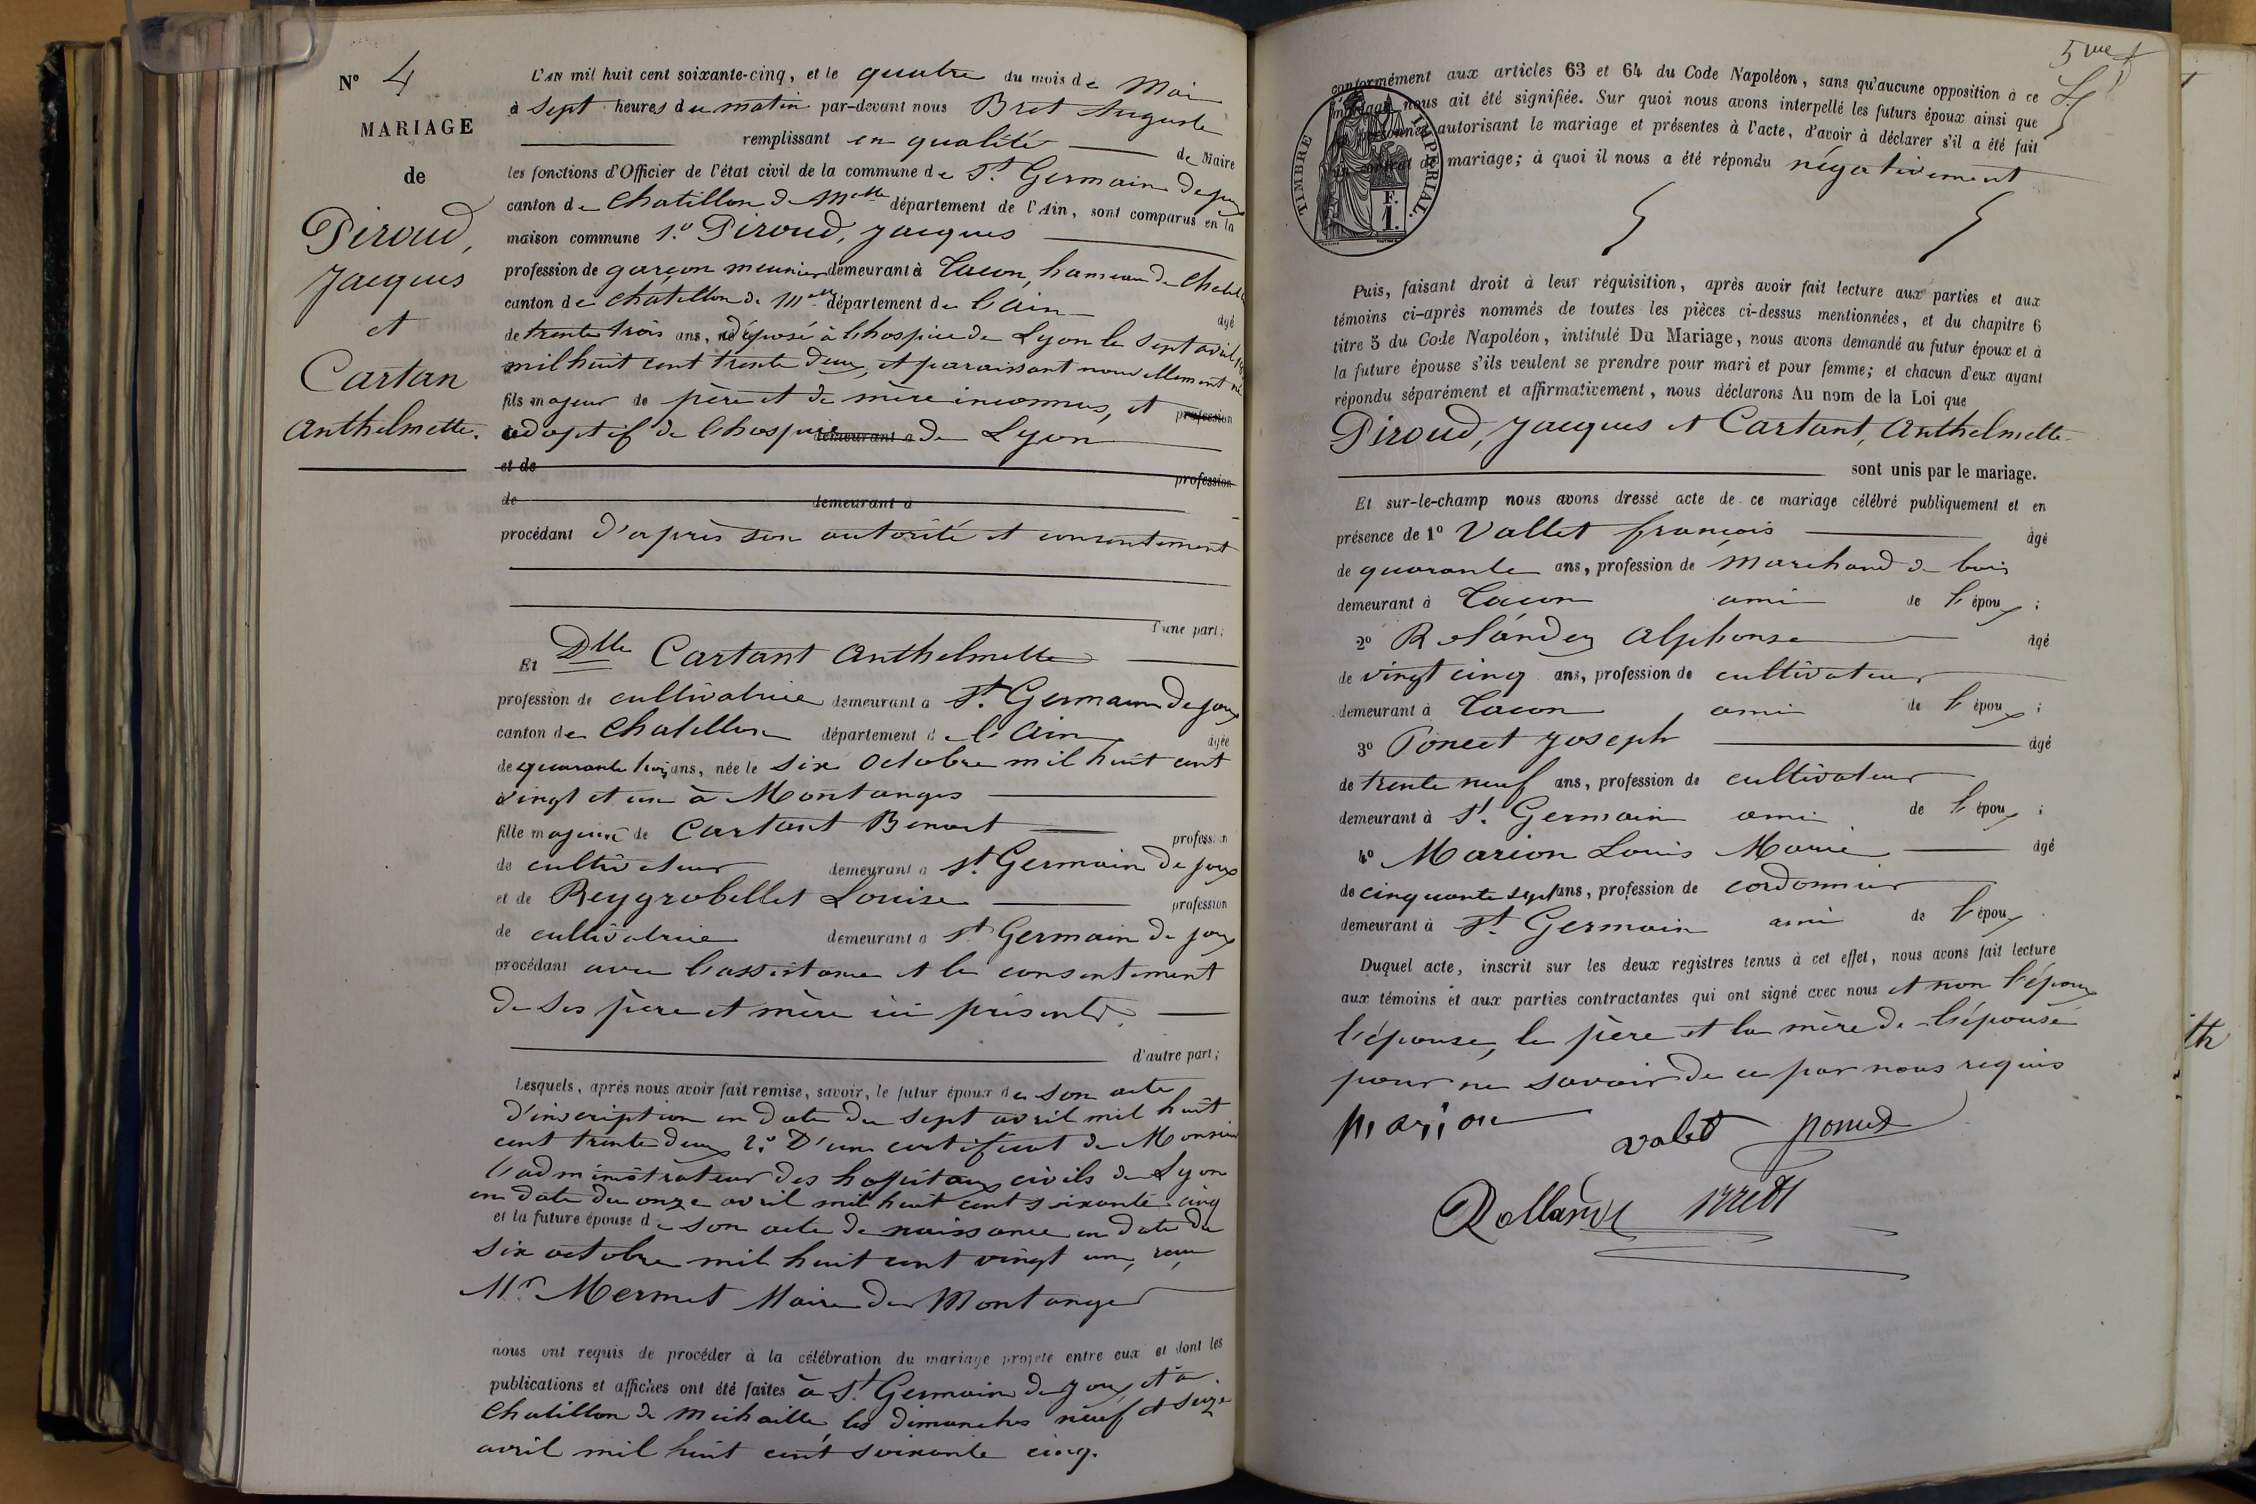 N° 4
MARIAGE
de
Piroud,
Jacques
et
Cartan
Anthelmette.
L'AN mil huit cent soixante-cinq, et le quatre du mois de Mai
à sept heures du matin par-devant nous Bret Auguste
remplissant en qualité de Maire
les fonctions d'Officier de l'état civil de la commune de St. Germain de joux
canton de Chatillon de Mlle département de l'Ain, sont comparus en la
maison commune 1.° Piroud, Jacques
profession de garçon meunier demeurant à Tacon, hameau de Chatillon
canton de Châtillon de Mlle département de l'ain
âgé
de trente trois ans, né déposé à l'hospice de Lyon le sept avril
mil huit cent trente deux, et paraissant nouvellement né
fils majeur de père et de mère inconnus, et profession
adoptif de l'hospice demeurant à de Lyon
et de
profession
de demeurant à
procédant d'après son autorité et consentement
d'une part;
Et Dlle Cartant Anthelmette
profession de cultivatrice demeurant à St. Germain de joux
canton de Chatillon département de l'Ain âgée
de quarante trois ans, née le six Octobre mil huit cent
vingt et un à Montanges
fille majeure de Cartant Benoit profession
de cultivateur demeurant à St. Germain de joux
et de Reygrobellet Louise profession
de cultivatrice demeurant à St Germain de joux
procédant avec l'assistance et le consentement
de ses père et mère ici présents.
d'autre part;
Lesquels, après nous avoir fait remise, savoir, le futur époux de son acte
d'inscription en date du sept avril mil huit
cent trente deux 2.° D'un certificat de Monsieur
l'administrateur des hôpitaux civils de Lyon
en date du onze avril mil huit cent soixante cinq
et la future épouse de son acte de naissance en date du
six octobre mil huit cent vingt un, reçu
Mr. Mermet Maire de Montanges
nous ont requis de procéder à la célébration du mariage projeté entre eux et dont les
publications et affiches ont été faites à St. Germain de Joux et à
Chatillon de Michaille, les dimanches neuf et seize
avril mil huit cent soixante cinq.
5me
conformément aux articles 63 et 64 du Code Napoléon, sans qu'aucune opposition à ce
mariage nous ait été signifiée. Sur quoi nous avons interpellé les futurs époux ainsi que
les personnes autorisant le mariage et présentes à l'acte, d'avoir à déclarer s'il a été fait
un contrat de mariage; à quoi il nous a été répondu négativement
TIMBRE IMPÉRIAL.
F.
1.
Puis, faisant droit à leur réquisition, après avoir fait lecture aux parties et aux
témoins ci-après nommés de toutes les pièces ci-dessus mentionnées, et du chapitre 6
titre 5 du Code Napoléon, intitulé Du Mariage, nous avons demandé au futur époux et à
la future épouse s'ils veulent se prendre pour mari et pour femme; et chacun d'eux ayant
répondu séparément et affirmativement, nous déclarons Au nom de la Loi que
Piroud, Jacques et Cartant, Anthelmette
sont unis par le mariage.
Et sur-le-champ nous avons dressé acte de ce mariage célébré publiquement et en
présence de 1° Vallet françois âgé
de quarante ans, profession de Marchand de bois
demeurant à Tacon ami de l'époux;
2° Alphonse âgé
de vingt cinq ans, profession de cultivateur
demeurant à Tacon ami de l'époux;
3° Poncet Joseph âgé
de trente neuf ans, profession de cultivateur
demeurant à St. Germain ami de l'époux;
4° Marion Louis Marie âgé
de cinquante sept ans, profession de cordonnier
demeurant à St. Germain ami de l'époux
Duquel acte, inscrit sur les deux registres tenus à cet effet, nous avons fait lecture
aux témoins et aux parties contractantes qui ont signé avec nous et non l'époux
l'épouse, le père et la mère de l'épouse
pour ne savoir de ce par nous requis
Marion
valet poncet
Rolland Bret
th